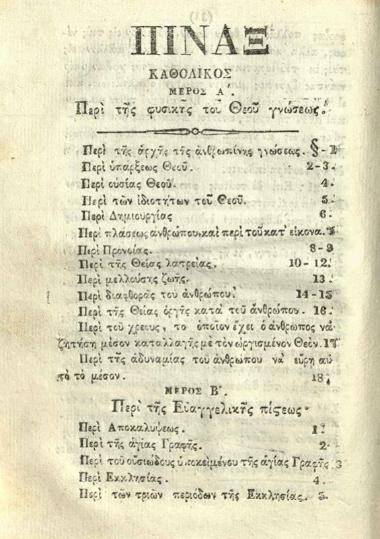 ΠΙΝΑΞ
ΚΑΘΟΛΙΚΟΣ
ΜΕΡΟΣ Α'.
Περὶ τῆς φυσικῆς τοῦ Θεοῦ γνώσεως.
Περὶ τῆς ἀρχῆς τῆς ἀνθρωπίνης γνώσεως. § - 1
Περὶ ὑπάρξεως Θεοῦ. 2-3.
Περὶ οὐσίας Θεοῦ. 4.
Περὶ τῶν ἰδιοτήτων τοῦ Θεοῦ. 5.
Περὶ Δημιουργίας 6.
Περὶ πλάσεως ἀνθρώπου, καὶ περὶ τοῦ κατ' εἰκόνα. 7
Περὶ Προνοίας. 8-9
Περὶ τῆς Θείας λατρείας. 10-12.
Περὶ μελλούσης ζωῆς. 13.
Περὶ διαφθορᾶς τοῦ ἀνθρώπου. 14-15
Περὶ τῆς Θείας ὀργῆς κατὰ τοῦ ἀνθρώπου. 16.
Περὶ τοῦ χρέους, τὸ ὁποῖον ἔχει ὁ ἄνθρωπος νὰ
ζητήσῃ μέσον καταλλαγῆς μὲ τὸν ὠργισμένον Θεόν. 17
Περὶ τῆς ἀδυναμίας τοῦ ἀνθρώπου νὰ εὕρῃ αὐ
τὸ τὸ μέσον. 18.
ΜΕΡΟΣ Β'.
Περὶ τῆς Εὐαγγελικῆς πίστεως.
Περὶ Ἀποκαλύψεως. 1.
Περὶ τῆς ἁγίας Γραφῆς. 2.
Περὶ τοῦ οὐσιώδους ὑποκειμένου τῆς ἁγίας Γραφῆς 3
Περὶ Ἐκκλησίας. 4.
Περὶ τῶν τριῶν περιόδων τῆς Ἐκκλησίας. 5.